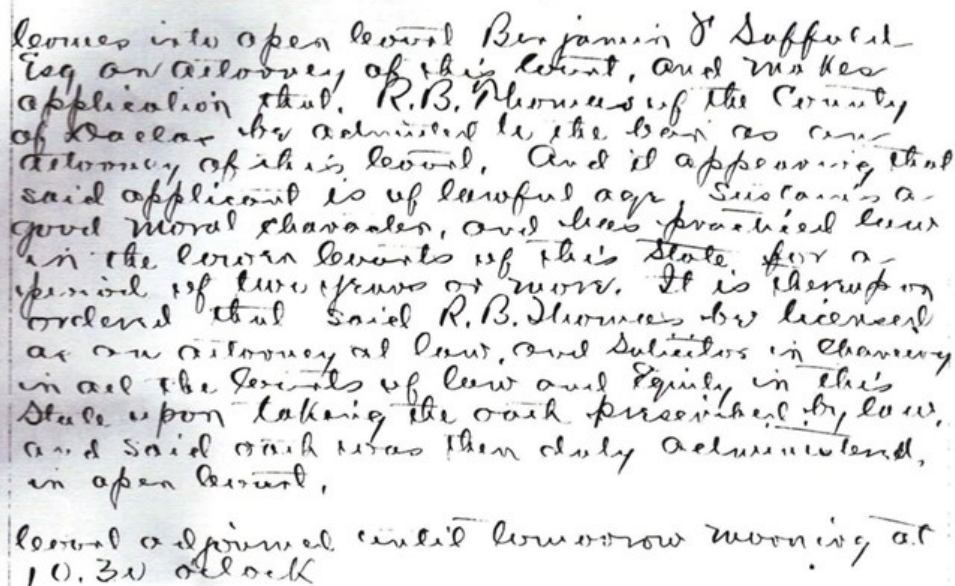 Comes into open Court Benjamin F Saffold
Esq an attorney of this Court, and makes
application that. R.B. Thomas of the County
of Dallas be admitted to the bar as an
attorney of this Court. And it appearing that
said applicant is of lawful age, Sustains a
good moral character, and has practiced law
in the lower Courts of this State for a
period of two years or more. It is thereupon
ordered that said R.B. Thomas be licensed
as an attorney at law, and Solicitor in Chancery
in all the Courts of law and Equity in this
State upon taking the oath prescribed by law,
and said oath was then duly administered,
in open Court.
Court adjourned until tomorrow morning at
10.30 oclock